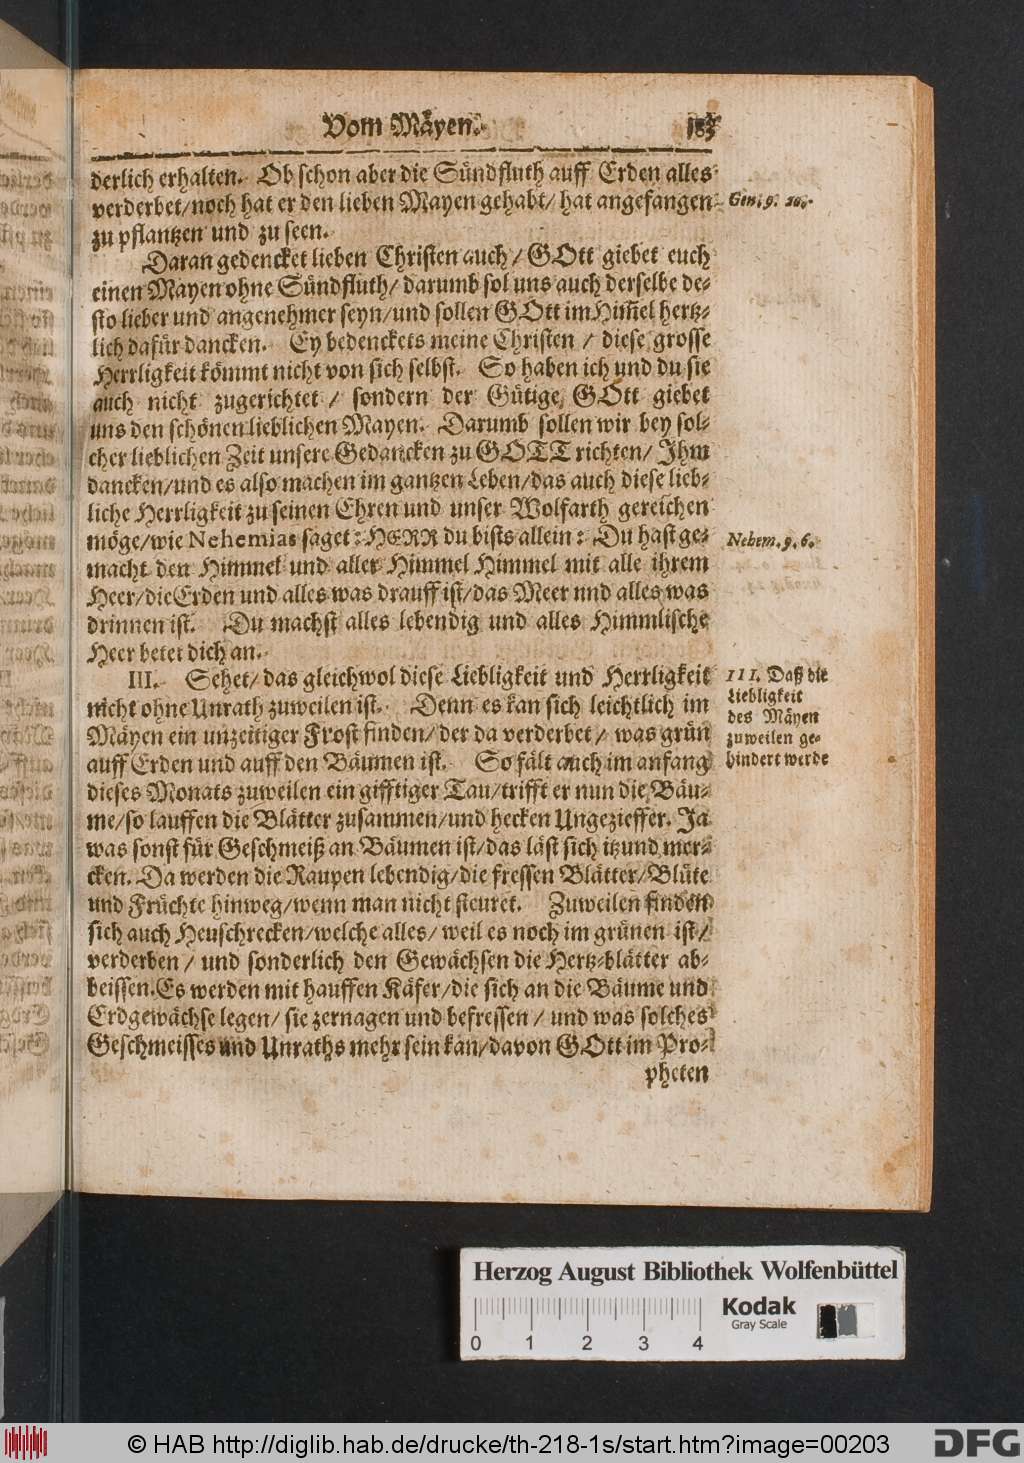 Vom Mäyen. 183
derlich erhalten. Ob schon aber die Sündfluth auff Erden alles
verderbet/noch hat er den lieben Mayen gehabt/ hat angefangen
Gen. 9. 20.
zu pflantzen und zu seen.
Daran gedencket lieben Christen auch/ GOtt giebet euch
einen Mayen ohne Sündfluth/ darumb sol uns auch derselbe de-
sto lieber und angenehmer seyn/und sollen GOtt im Him̃el hertz-
lich dafür dancken. Ey bedenckets meine Christen / diese grosse
Herrligkeit kömmt nicht von sich selbst. So haben ich und du sie
auch nicht zugerichtet / sondern der Gütige GOtt giebet
uns den schönen lieblichen Mayen. Darumb sollen wir bey sol-
cher lieblichen Zeit unsere Gedancken zu GOTT richten/ Ihm
dancken/und es also machen im gantzen Leben/das auch diese lieb-
liche Herrligkeit zu seinen Ehren und unser Wolfarth gereichen
möge/wie Nehemias saget: HERR du bists allein: Du hast ge-
Nehem. 9. 6.
macht den Himmel und aller Himmel Himmel mit alle ihrem
Heer/die Erden und alles was drauff ist/das Meer und alles was
drinnen ist. Du machst alles lebendig und alles Himmlische
Heer betet dich an.
III. Sehet/ das gleichwol diese Liebligkeit und Herrligkeit
nicht ohne Unrath zuweilen ist. Denn es kan sich leichtlich im
Mäyen ein unzeitiger Frost finden/ der da verderbet / was grün
auff Erden und auff den Bäumen ist. So fält auch im anfang
III. Daß die
Liebligkeit
des Mäyen
zuweilen ge-
hindert werde
dieses Monats zuweilen ein gifftiger Tau/trifft er nun die Bäu-
me/so lauffen die Blätter zusammen/und hecken Ungezieffer. Ja
was sonst für Geschmeiß an Bäumen ist/das läst sich itzund mer-
cken. Da werden die Raupen lebendig/die fressen Blätter/Blüte
und Früchte hinweg/wenn man nicht steuret. Zuweilen finden
sich auch Heuschrecken/welche alles/ weil es noch im grünen ist/
verderben / und sonderlich den Gewächsen die Hertz-blätter ab-
beissen. Es werden mit hauffen Käfer/die sich an die Bäume und
Erdgewächse legen/ sie zernagen und befressen / und was solches
Geschmeisses und Unraths mehr sein kan/davon GOtt im Pro-
pheten
Herzog August Bibliothek Wolfenbüttel
0 1 2 3 4
Kodak
Gray Scale
© HAB http://diglib.hab.de/drucke/th-218-1s/start.htm?image=00203
DFG